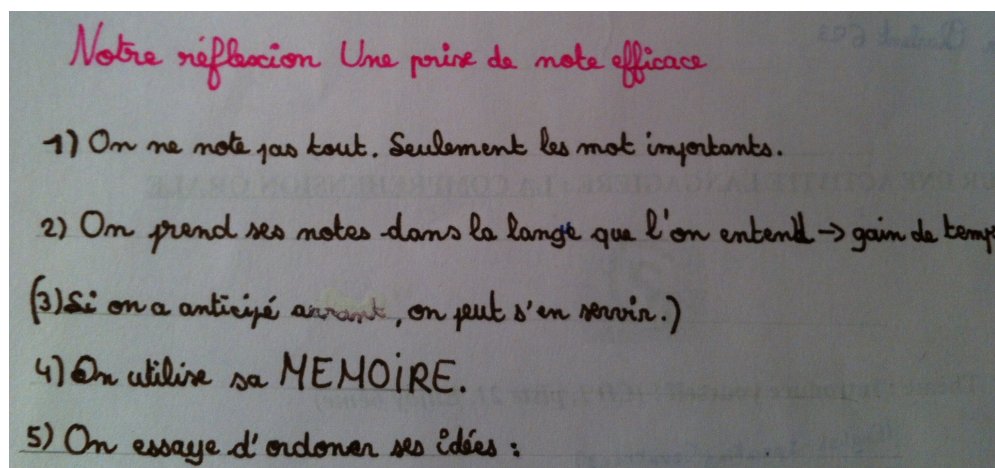 Notre réflexion Une prise de note efficace
1) On ne note pas tout. Seulement les mot importants.
2) On prend ses notes dans la lange que l'on entend → gain de temps
(3) Si on a anticipé avant, on peut s'en servir.)
4) On utilise sa MEMOIRE.
5) On essaye d'ordoner ses idées :